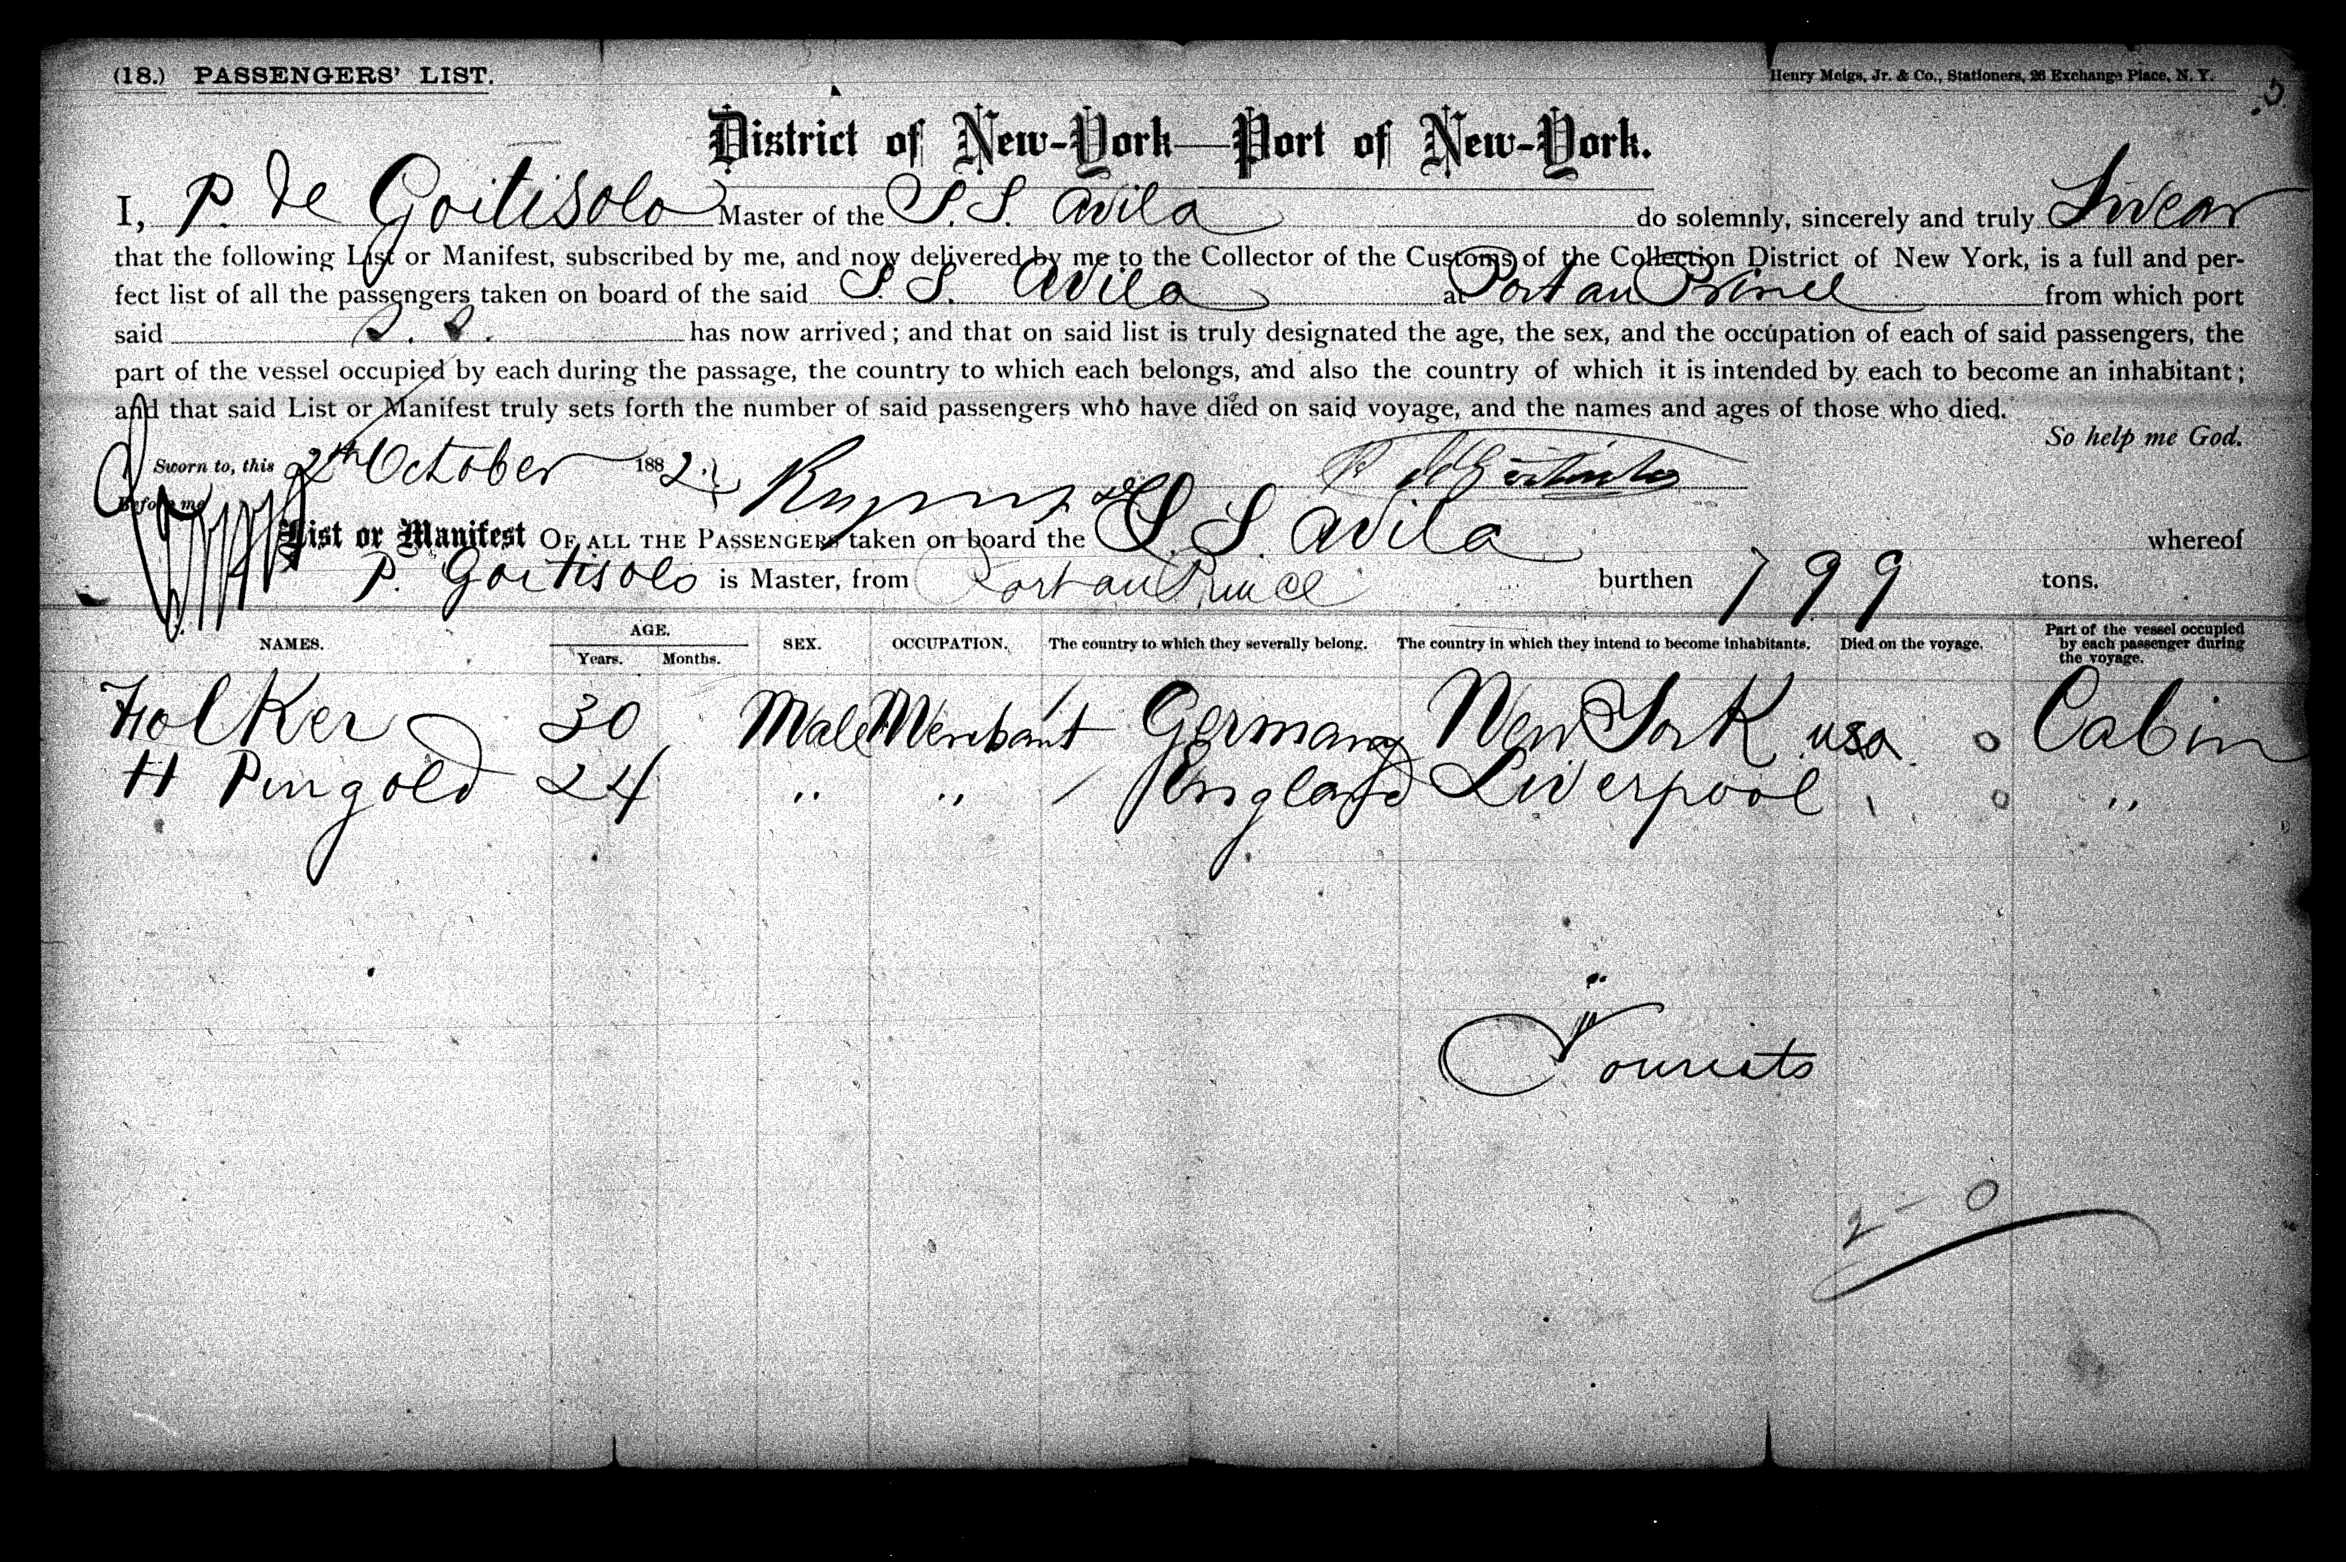 (18.) PASSENGERS' LIST.
Henry Meigs, Jr. & Co., Stationers, 26 Exchange Place, N. Y.
District of New-York—Port of New-York.
I, P. de Goitisolo Master of the S. S. Avila do solemnly, sincerely and truly Swear
that the following List or Manifest, subscribed by me, and now delivered by me to the Collector of the Customs of the Collection District of New York, is a full and per-
fect list of all the passengers taken on board of the said S. S. Avila at Port au Prince from which port
said S. S. has now arrived; and that on said list is truly designated the age, the sex, and the occupation of each of said passengers, the
part of the vessel occupied by each during the passage, the country to which each belongs, and also the country of which it is intended by each to become an inhabitant;
and that said List or Manifest truly sets forth the number of said passengers who have died on said voyage, and the names and ages of those who died.
So help me God.
Sworn to, this 2th October 1882.
Before me
List or Manifest OF ALL THE PASSENGERS taken on board the S. S. Avila whereof
P. Goitisolo is Master, from Port au Prince burthen 799 tons.
NAMES. AGE. Years. Months. SEX. OCCUPATION. The country to which they severally belong. The country in which they intend to become inhabitants. Died on the voyage. Part of the vessel occupied by each passenger during the voyage.
Folker 30 Male Merchant / Germany New York usa o Cabin
H Pingold 24 " " / England Liverpool o "
Tourists
2 - 0